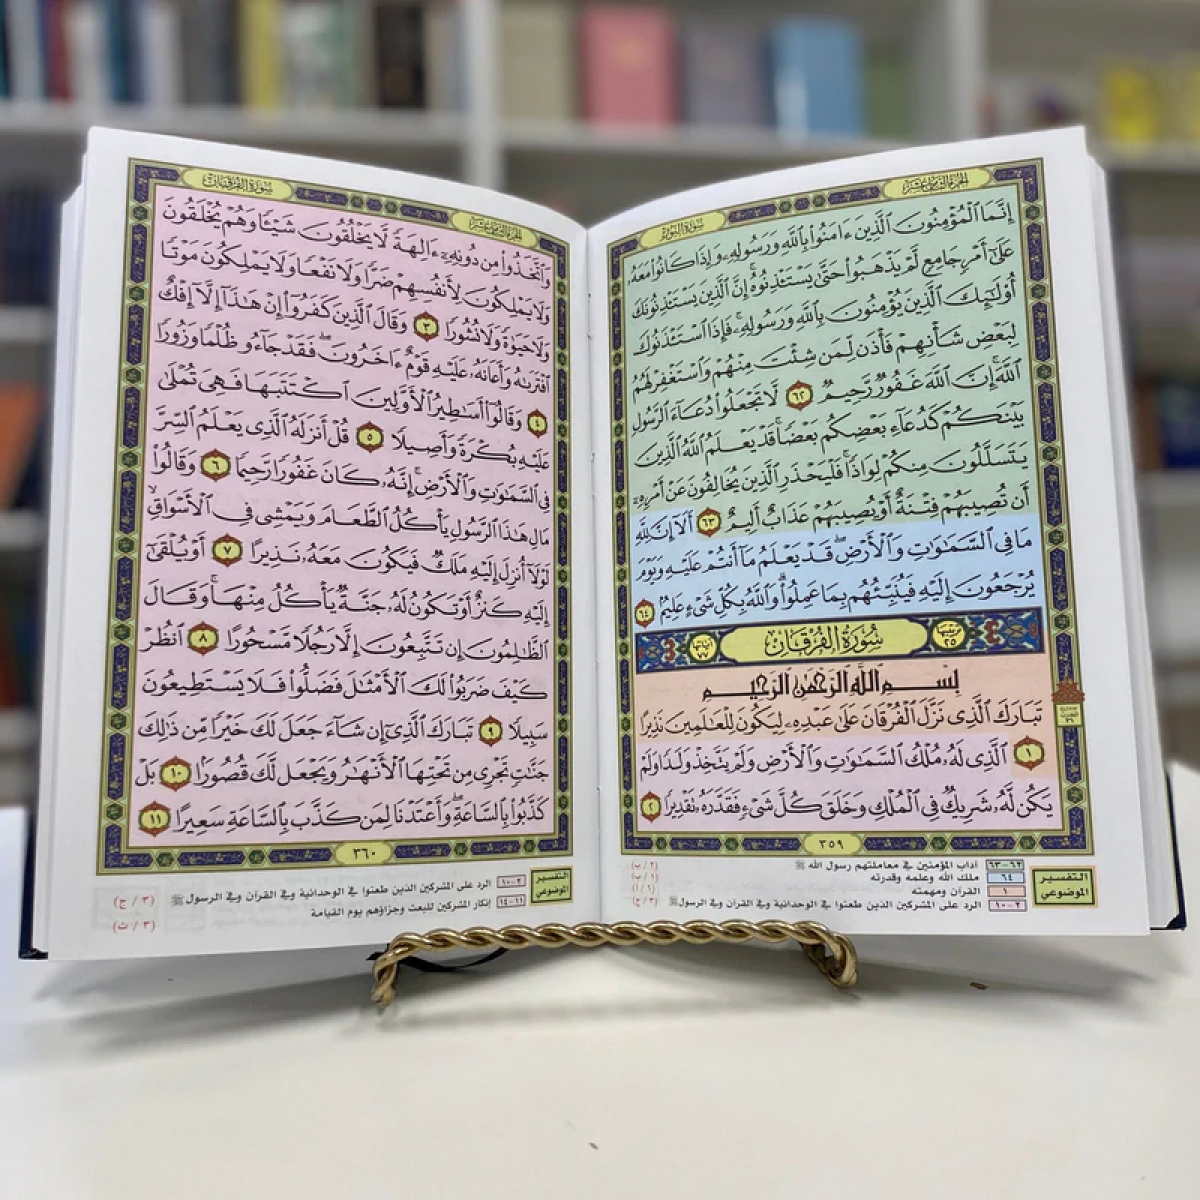 سورة النور
الجزء الثامن عشر
إِنَّمَا ٱلْمُؤْمِنُونَ ٱلَّذِينَ ءَامَنُوا۟ بِٱللَّهِ وَرَسُولِهِۦ وَإِذَا كَانُوا۟ مَعَهُۥ
عَلَىٰٓ أَمْرٍ جَامِعٍ لَّمْ يَذْهَبُوا۟ حَتَّىٰ يَسْتَـْٔذِنُوهُ ۚ إِنَّ ٱلَّذِينَ يَسْتَـْٔذِنُونَكَ
أُو۟لَـٰٓئِكَ ٱلَّذِينَ يُؤْمِنُونَ بِٱللَّهِ وَرَسُولِهِۦ ۚ فَإِذَا ٱسْتَـْٔذَنُوكَ
لِبَعْضِ شَأْنِهِمْ فَأْذَن لِّمَن شِئْتَ مِنْهُمْ وَٱسْتَغْفِرْ لَهُمُ
ٱللَّهَ ۚ إِنَّ ٱللَّهَ غَفُورٌ رَّحِيمٌ ٦٢ لَّا تَجْعَلُوا۟ دُعَآءَ ٱلرَّسُولِ
بَيْنَكُمْ كَدُعَآءِ بَعْضِكُم بَعْضًا ۚ قَدْ يَعْلَمُ ٱللَّهُ ٱلَّذِينَ
يَتَسَلَّلُونَ مِنكُمْ لِوَاذًا ۚ فَلْيَحْذَرِ ٱلَّذِينَ يُخَالِفُونَ عَنْ أَمْرِهِۦٓ
أَن تُصِيبَهُمْ فِتْنَةٌ أَوْ يُصِيبَهُمْ عَذَابٌ أَلِيمٌ ٦٣ أَلَآ إِنَّ لِلَّهِ
مَا فِى ٱلسَّمَـٰوَٰتِ وَٱلْأَرْضِ ۖ قَدْ يَعْلَمُ مَآ أَنتُمْ عَلَيْهِ وَيَوْمَ
يُرْجَعُونَ إِلَيْهِ فَيُنَبِّئُهُم بِمَا عَمِلُوا۟ ۗ وَٱللَّهُ بِكُلِّ شَىْءٍ عَلِيمٌۢ ٦٤
ترتيبها ٢٥ سُورَةُ الْفُرْقَانِ آياتها ٧٧
بِسْمِ ٱللَّهِ ٱلرَّحْمَـٰنِ ٱلرَّحِيمِ
تَبَارَكَ ٱلَّذِى نَزَّلَ ٱلْفُرْقَانَ عَلَىٰ عَبْدِهِۦ لِيَكُونَ لِلْعَـٰلَمِينَ نَذِيرًا
١ ٱلَّذِى لَهُۥ مُلْكُ ٱلسَّمَـٰوَٰتِ وَٱلْأَرْضِ وَلَمْ يَتَّخِذْ وَلَدًا وَلَمْ
يَكُن لَّهُۥ شَرِيكٌ فِى ٱلْمُلْكِ وَخَلَقَ كُلَّ شَىْءٍ فَقَدَّرَهُۥ تَقْدِيرًا ٢
٣٥٩
التفسير الموضوعي
٦٢-٦٣ آداب المؤمنين في معاملتهم رسول الله ﷺ (٢ / ب)
٦٤ ملك الله وعلمه وقدرته (١ / ب)
١ القرآن ومهمته (٦ / أ)
٢-١٠ الرد على المشركين الذين طعنوا في الوحدانية وفي القرآن وفي الرسول ﷺ (٣ / ج)
سورة الفرقان
الجزء الثامن عشر
وَٱتَّخَذُوا۟ مِن دُونِهِۦٓ ءَالِهَةً لَّا يَخْلُقُونَ شَيْـًٔا وَهُمْ يُخْلَقُونَ
وَلَا يَمْلِكُونَ لِأَنفُسِهِمْ ضَرًّا وَلَا نَفْعًا وَلَا يَمْلِكُونَ مَوْتًا
وَلَا حَيَوٰةً وَلَا نُشُورًا ٣ وَقَالَ ٱلَّذِينَ كَفَرُوٓا۟ إِنْ هَـٰذَآ إِلَّآ إِفْكٌ
ٱفْتَرَىٰهُ وَأَعَانَهُۥ عَلَيْهِ قَوْمٌ ءَاخَرُونَ ۖ فَقَدْ جَآءُو ظُلْمًا وَزُورًا
٤ وَقَالُوٓا۟ أَسَـٰطِيرُ ٱلْأَوَّلِينَ ٱكْتَتَبَهَا فَهِىَ تُمْلَىٰ
عَلَيْهِ بُكْرَةً وَأَصِيلًا ٥ قُلْ أَنزَلَهُ ٱلَّذِى يَعْلَمُ ٱلسِّرَّ
فِى ٱلسَّمَـٰوَٰتِ وَٱلْأَرْضِ ۚ إِنَّهُۥ كَانَ غَفُورًا رَّحِيمًا ٦ وَقَالُوا۟
مَالِ هَـٰذَا ٱلرَّسُولِ يَأْكُلُ ٱلطَّعَامَ وَيَمْشِى فِى ٱلْأَسْوَاقِ ۙ
لَوْلَآ أُنزِلَ إِلَيْهِ مَلَكٌ فَيَكُونَ مَعَهُۥ نَذِيرًا ٧ أَوْ يُلْقَىٰٓ
إِلَيْهِ كَنزٌ أَوْ تَكُونُ لَهُۥ جَنَّةٌ يَأْكُلُ مِنْهَا ۚ وَقَالَ
ٱلظَّـٰلِمُونَ إِن تَتَّبِعُونَ إِلَّا رَجُلًا مَّسْحُورًا ٨ ٱنظُرْ
كَيْفَ ضَرَبُوا۟ لَكَ ٱلْأَمْثَـٰلَ فَضَلُّوا۟ فَلَا يَسْتَطِيعُونَ
سَبِيلًا ٩ تَبَارَكَ ٱلَّذِىٓ إِن شَآءَ جَعَلَ لَكَ خَيْرًا مِّن ذَٰلِكَ
جَنَّـٰتٍ تَجْرِى مِن تَحْتِهَا ٱلْأَنْهَـٰرُ وَيَجْعَل لَّكَ قُصُورًۢا ١٠ بَلْ
كَذَّبُوا۟ بِٱلسَّاعَةِ ۖ وَأَعْتَدْنَا لِمَن كَذَّبَ بِٱلسَّاعَةِ سَعِيرًا ١١
٣٦٠
التفسير الموضوعي
٢-١٠ الرد على المشركين الذين طعنوا في الوحدانية وفي القرآن وفي الرسول ﷺ (٣ / ج)
١١-١٤ إنكار المشركين للبعث وجزاؤهم يوم القيامة (٣ / ت)